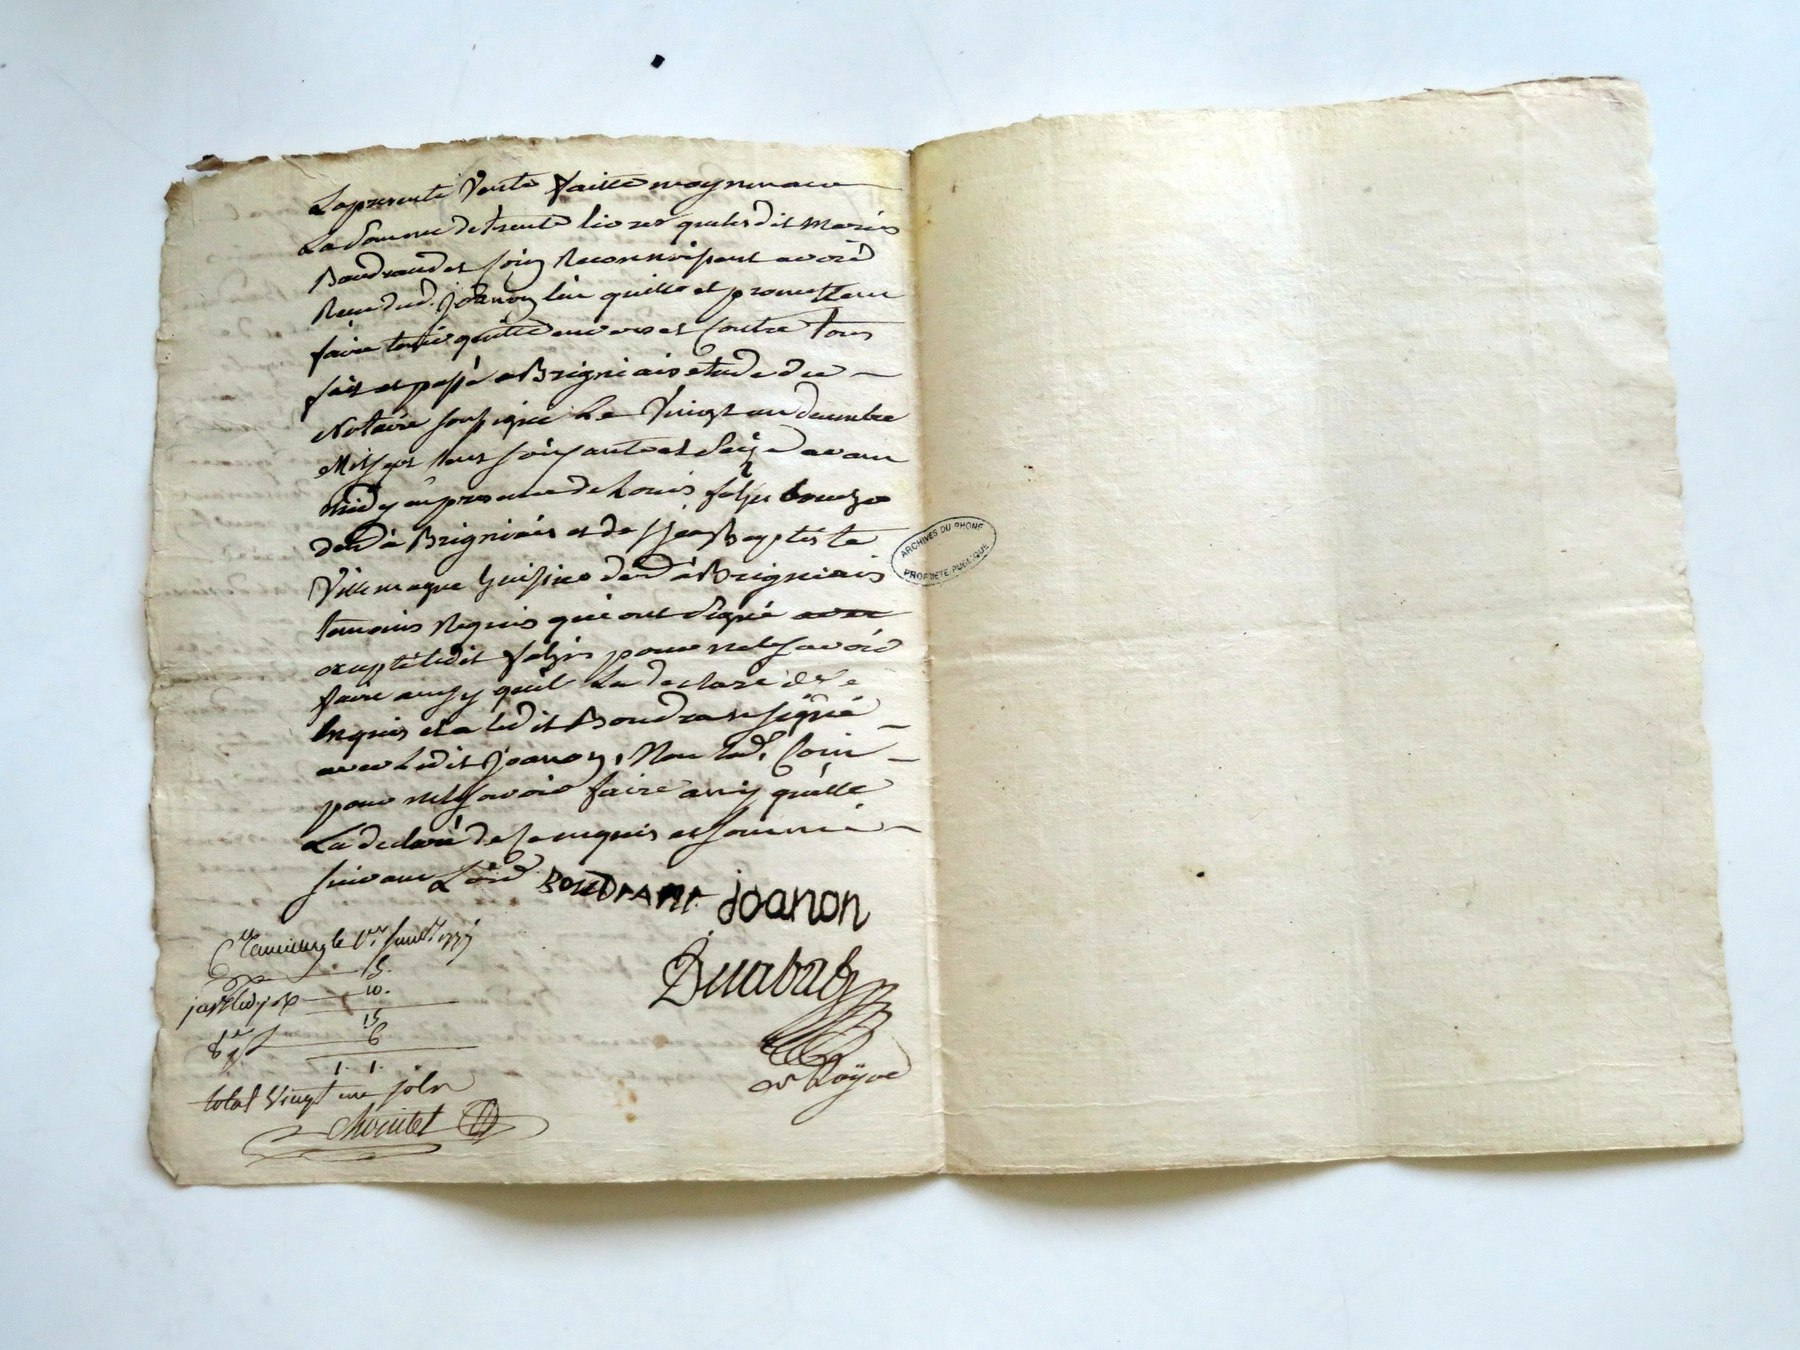 La presente vente faitte moyennant
La somme de trente livres que lesdit mariés
Boudrand et Join Reconnoissent avoir
Receu d. joanon l'en quitte et promettent
faire tenir quitte envers et contre tous
fait et passé a Brigniais etude du
Notaire soussigné Le Vingt un decembre
Mil sept cent soixante et seize avant
midy en presence de Louis
dud à Brigniais et de Jean Baptiste
Villemagne huissier dud à Brigniais
temoins Requis qui ont signé avec
excepté ledit pour ne le savoir
faire ainsy quil La declaré de ce
enquis et a ledit Boudran signé
avec Ledit joanon, Non lad. Join
pour ne le savoir faire ainsy quelle
La declaré de ce enquis et sommé
suivant L'ord
BOUDRANT joanon
15
10
15
6
1. 1.
total Vingt un sols
ARCHIVES DU RHONE
PROPRIETE PUBLIQUE